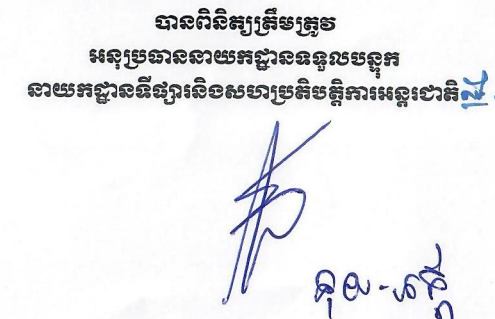 បានពិនិត្យត្រឹមត្រូវ
អនុប្រធាននាយកដ្ឋានទទួលបន្ទុក
នាយកដ្ឋានទីផ្សារនិងសហប្រតិបត្តិការអន្តរជាតិ